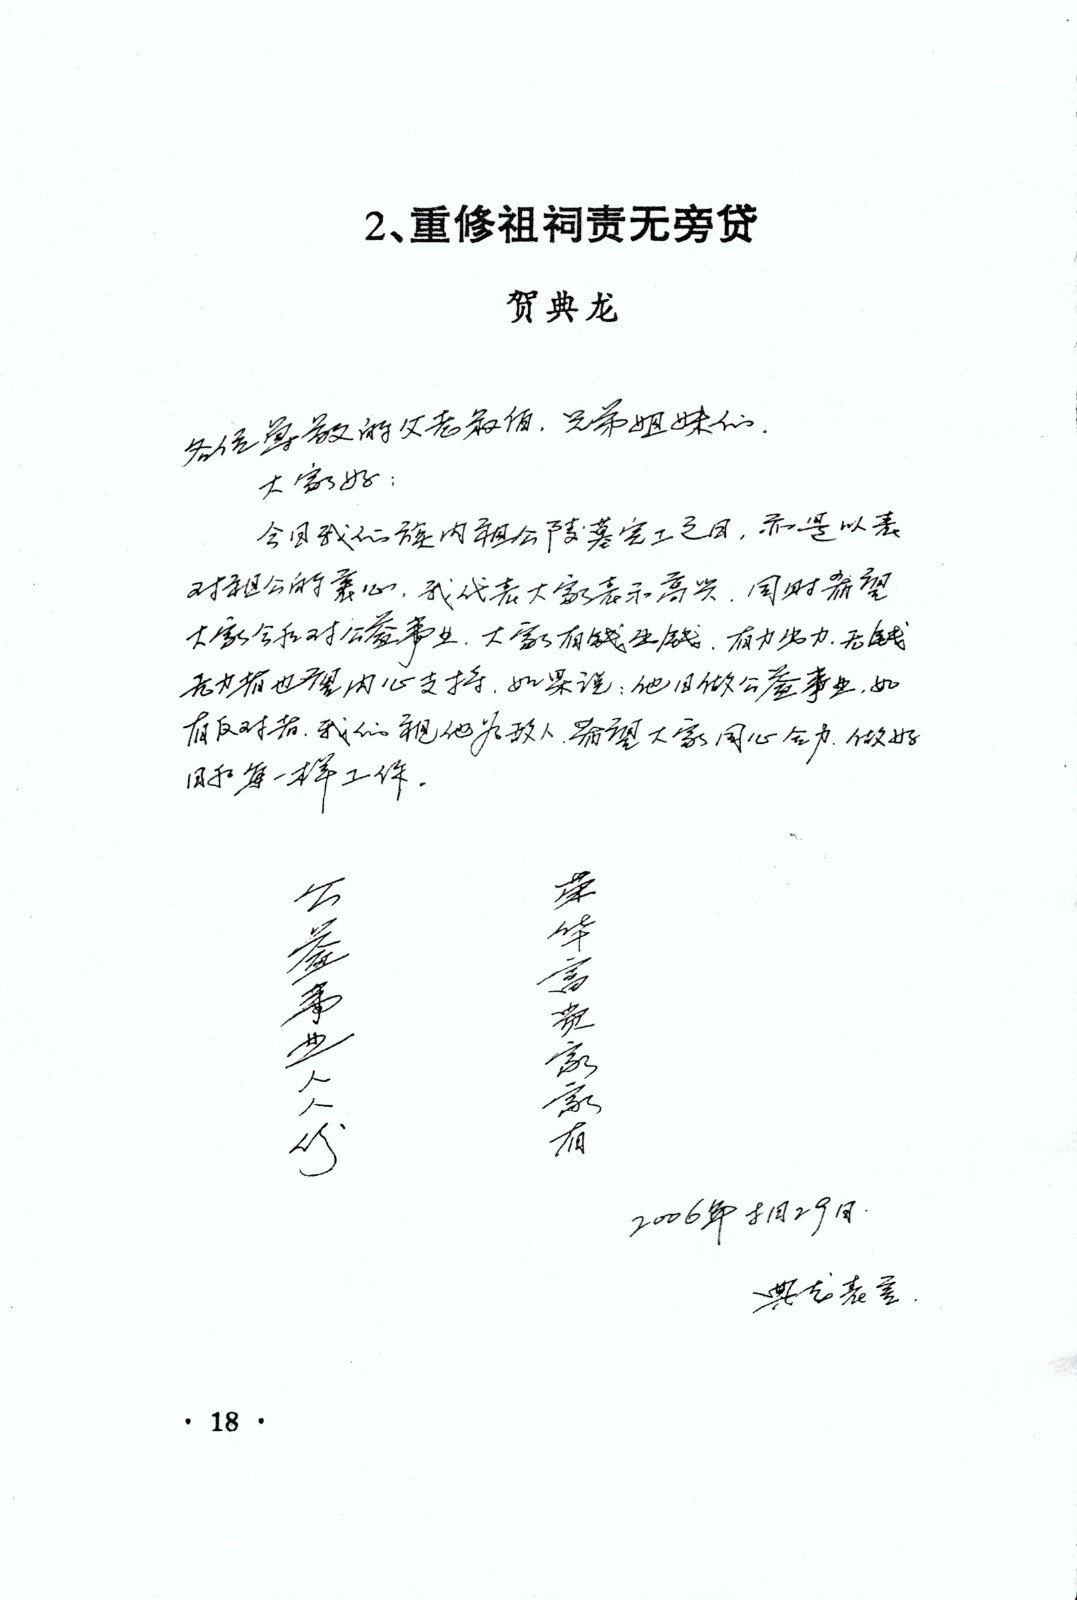 2、重修祖祠责无旁贷
贺典龙
各位尊敬的父老叔伯，兄弟姐妹们，
大家好：
今日我们族内祖公陵墓完工之日，亦是以表
对祖公的衷心，我代表大家表示高兴，同时希望
大家今后对公益事业，大家有钱出钱，有力出力，无钱
无力者也望内心支持，如果说：他日做公益事业，如
有反对者，我们视他为敌人，希望大家同心合力，做好
日后每一样工作。
荣华富贵家家有
公益事业人人份
2006年 月29日.
典龙表言.
· 18 ·